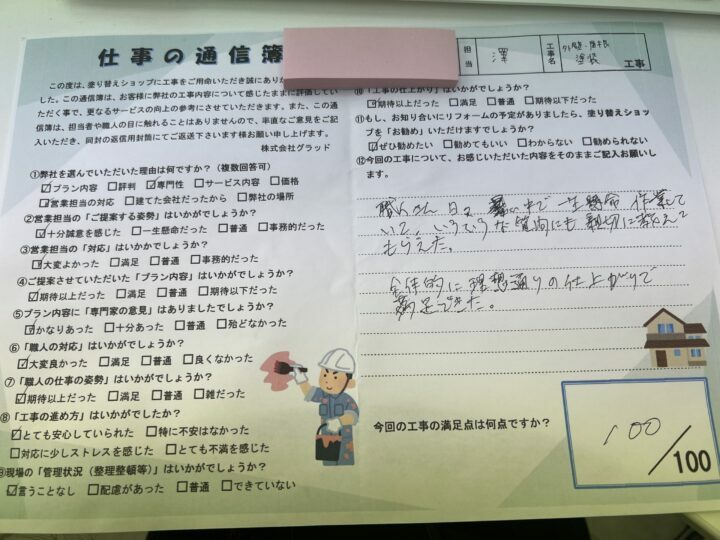 仕事の通信簿
担当
澤
工事名
外壁・屋根
塗装
工事
この度は、塗り替えショップに工事をご用命いただき誠にありが
した。この通信簿は、お客様に弊社の工事内容について感じたままに評価してい
ただく事で、更なるサービスの向上の参考にさせていただきます。また、この通
信簿は、担当者や職人の目に触れることはありませんので、率直なご意見をご記
入いただき、同封の返信用封筒にてご返送下さいます様お願い申し上げます。
株式会社グラッド
①弊社を選んでいただいた理由は何ですか?(複数回答可)
☑プラン内容 □評判 ☑専門性 □サービス内容 □価格
☑営業担当の対応 □建てた会社だったから □弊社の場所
②営業担当の「ご提案する姿勢」はいかがでしょうか?
☑十分誠意を感じた □一生懸命だった □普通 □事務的だった
③営業担当の「対応」はいかかでしょうか?
☑大変よかった □満足 □普通 □事務的だった
④ご提案させていただいた「プラン内容」はいかがでしょうか?
☑期待以上だった □満足 □普通 □期待以下だった
⑤プラン内容に「専門家の意見」はありましたでしょうか?
☑かなりあった □十分あった □普通 □殆どなかった
⑥「職人の対応」はいかがでしょうか?
☑大変良かった □満足 □普通 □良くなかった
⑦「職人の仕事の姿勢」はいかがでしょうか?
☑期待以上だった □満足 □普通 □雑だった
⑧「工事の進め方」はいかがでしたか?
☑とても安心していられた □特に不安はなかった
□対応に少しストレスを感じた □とても不満を感じた
⑨現場の「管理状況(整理整頓等)」はいかがでしょうか?
☑言うことなし □配慮があった □普通 □できていない
⑩「工事の仕上がり」はいかがでしょうか?
☑期待以上だった □満足 □普通 □期待以下だった
⑪もし、お知り合いにリフォームの予定がありましたら、塗り替えショッ
プを「お勧め」いただけますでしょうか?
☑ぜひ勧めたい □勧めてもいい □わからない □勧められない
⑫今回の工事について、お感じいただいた内容をそのままご記入お願いし
ます。
職人さん 日々 暑い中で一生懸命 作業して
いて、いろいろな質問にも親切に教えて
もらえた。
全体的に理想通りの仕上がりで
満足できた。
今回の工事の満足点は何点ですか?
100
/100